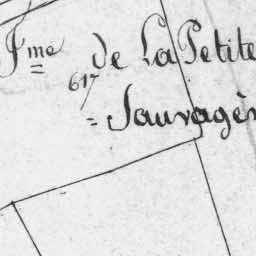 Fme de La Petite
617
= Sauvagèr